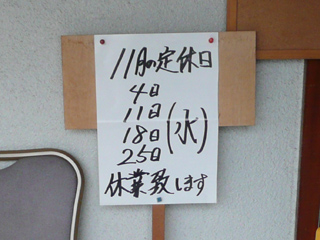 11月の定休日
4日
11日
18日
25日
(水)
休業致します